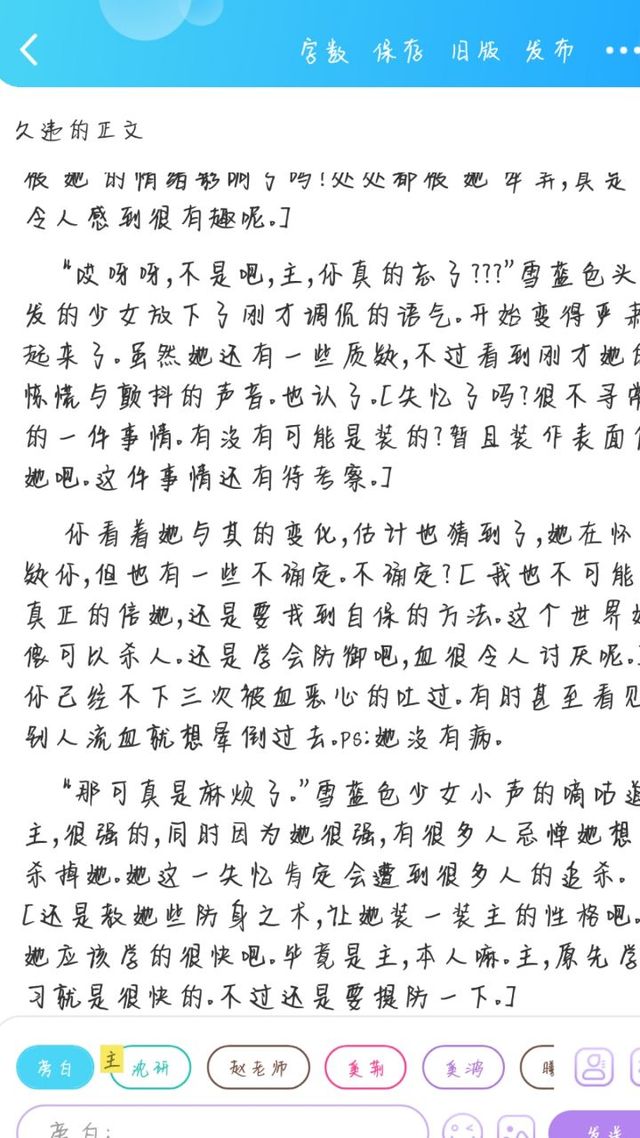 字数 保存 旧版 发布
久违的正文
被她的情绪影响了吗!处处都被她牵弄,真是
令人感到很有趣呢。]
“哎呀呀,不是吧,主,你真的忘了???”雪蓝色头
发的少女放下了刚才调侃的语气。开始变得严肃
起来了。虽然她还有一些质疑,不过看到刚才她的
惊慌与颤抖的声音。也认了。[失忆了吗?很不寻常
的一件事情。有没有可能是装的?暂且装作表面信
她吧。这件事情还有待考察。]
你看着她与其的变化,估计也猜到了,她在怀
疑你,但也有一些不确定。不确定?[我也不可能
真正的信她,还是要找到自保的方法。这个世界好
像可以杀人。还是学会防御吧,血很令人讨厌呢。]
你已经不下三次被血恶心的吐过。有时甚至看见
别人流血就想晕倒过去。ps:她没有病。
“那可真是麻烦了。”雪蓝色少女小声的嘀咕道
主,很强的,同时因为她很强,有很多人忌惮她想
杀掉她。她这一失忆肯定会遭到很多人的追杀。
[还是教她些防身之术,让她装一装主的性格吧。
她应该学的很快吧。毕竟是主,本人嘛。主,原先学
习就是很快的。不过还是要提防一下。]
旁白 主 沈研 赵老师 奚荆 奚鸿
旁白: 发送